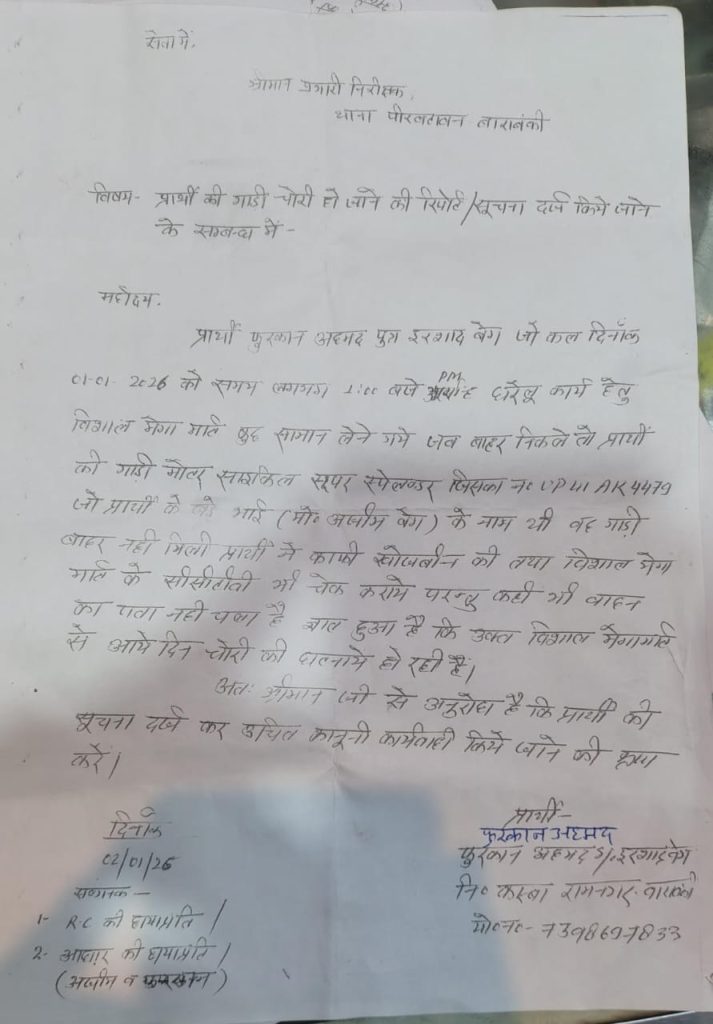 सेवा में,
श्रीमान प्रभारी निरीक्षक,
थाना पीरबटावन बाराबंकी
विषय- प्रार्थी की गाडी चोरी हो जाने की रिपोर्ट/सूचना दर्ज किये जाने
के सम्बन्ध में -
महोदय,
प्रार्थी फुरकान अहमद पुत्र इरशाद बेग जो कल दिनाँक
01-01-2026 को समय लगभग 1:00 बजे PM घरेलू कार्य हेतु
विशाल मेगा मार्ट कुछ सामान लेने गये जब बाहर निकले तो प्रार्थी
की गाडी मोटर साइकिल सूपर स्पेलन्डर जिसका न० UP41 AK4479
जो प्रार्थी के बडे भाई (मो० अजीम बेग) के नाम थी वह गाड़ी
बाहर नही मिली प्रार्थी ने काफी खोजबीन की तथा विशाल मेगा
मार्ट के सीसीटीवी भी चेक कराये परन्तु कही भी वाहन
का पता नही चला है ज्ञात हुआ है कि उक्त विशाल मेगामार्ट
से आये दिन चोरी की घटनाये हो रही हैं।
अतः श्रीमान जी से अनुरोध है कि प्रार्थी की
सूचना दर्ज कर उचित कानूनी कार्यवाही किये जाने की कृपा
करें।
दिनाँक
02/01/26
संलग्नक -
1- R.C की छायाप्रति /
2- आधार की छायाप्रति /
(अजीम व फुरकान)
प्रार्थी-
फुरकान अहमद
फुरकान अहमद S/० इरशाद बेग
नि० कस्बा रामनगर-बाराबंकी
मो०न०- 7398697833